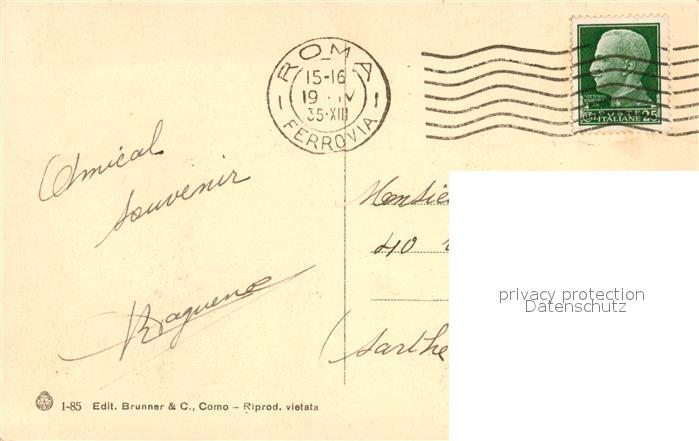 ROMA
15-16
19 · IV
35·XIII
FERROVIA
POSTE
ITALIANE 25
Amical
souvenir
Monsie
40
(Sarthe
privacy protection
Datenschutz
1-85 Edit. Brunner & C., Como – Riprod. vietata